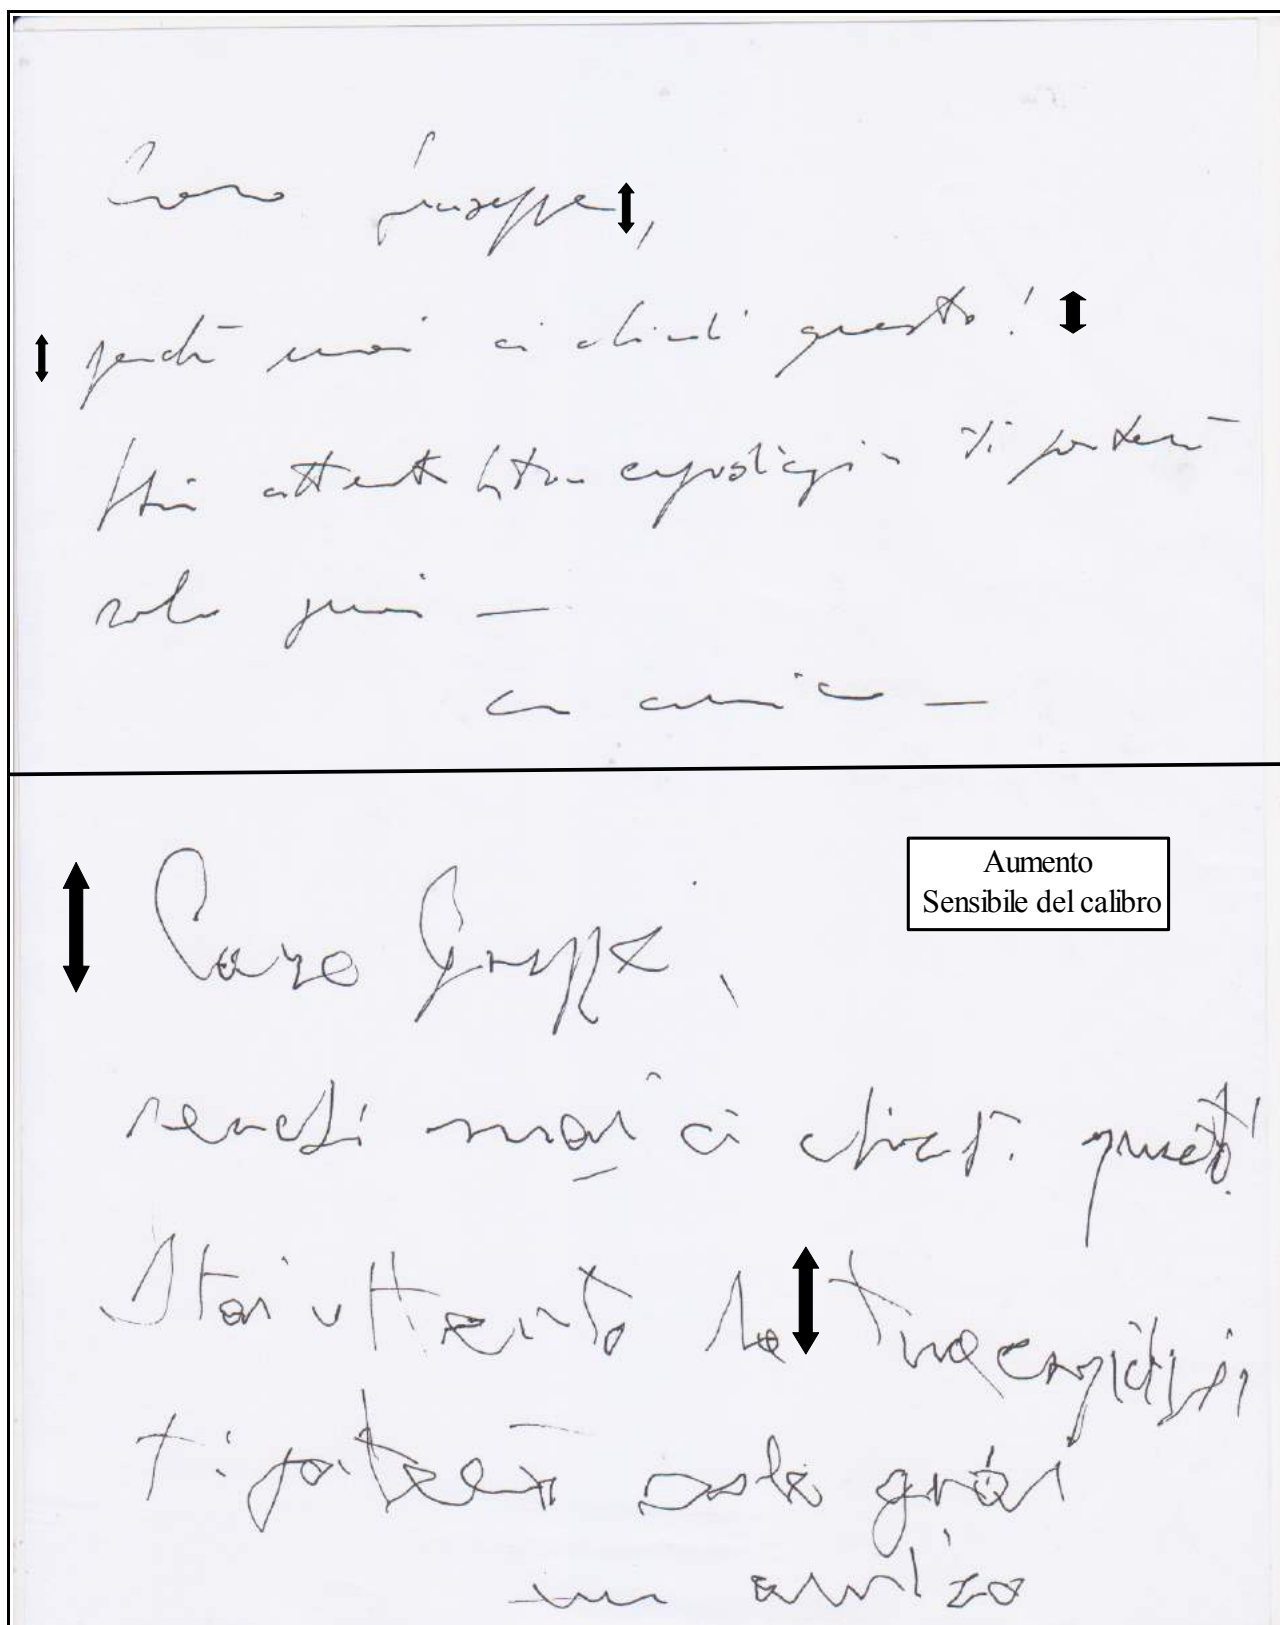 Caro Giuseppe,
perché mai ci chiedi questo!
Stai attento la tua cupidigia ti porterà
solo guai —
un amico —
Aumento
Sensibile del calibro
Caro Giuseppe,
perché mai ci chiedi questo!
Stai attento la tua cupidigia
ti porterà solo guai
un amico